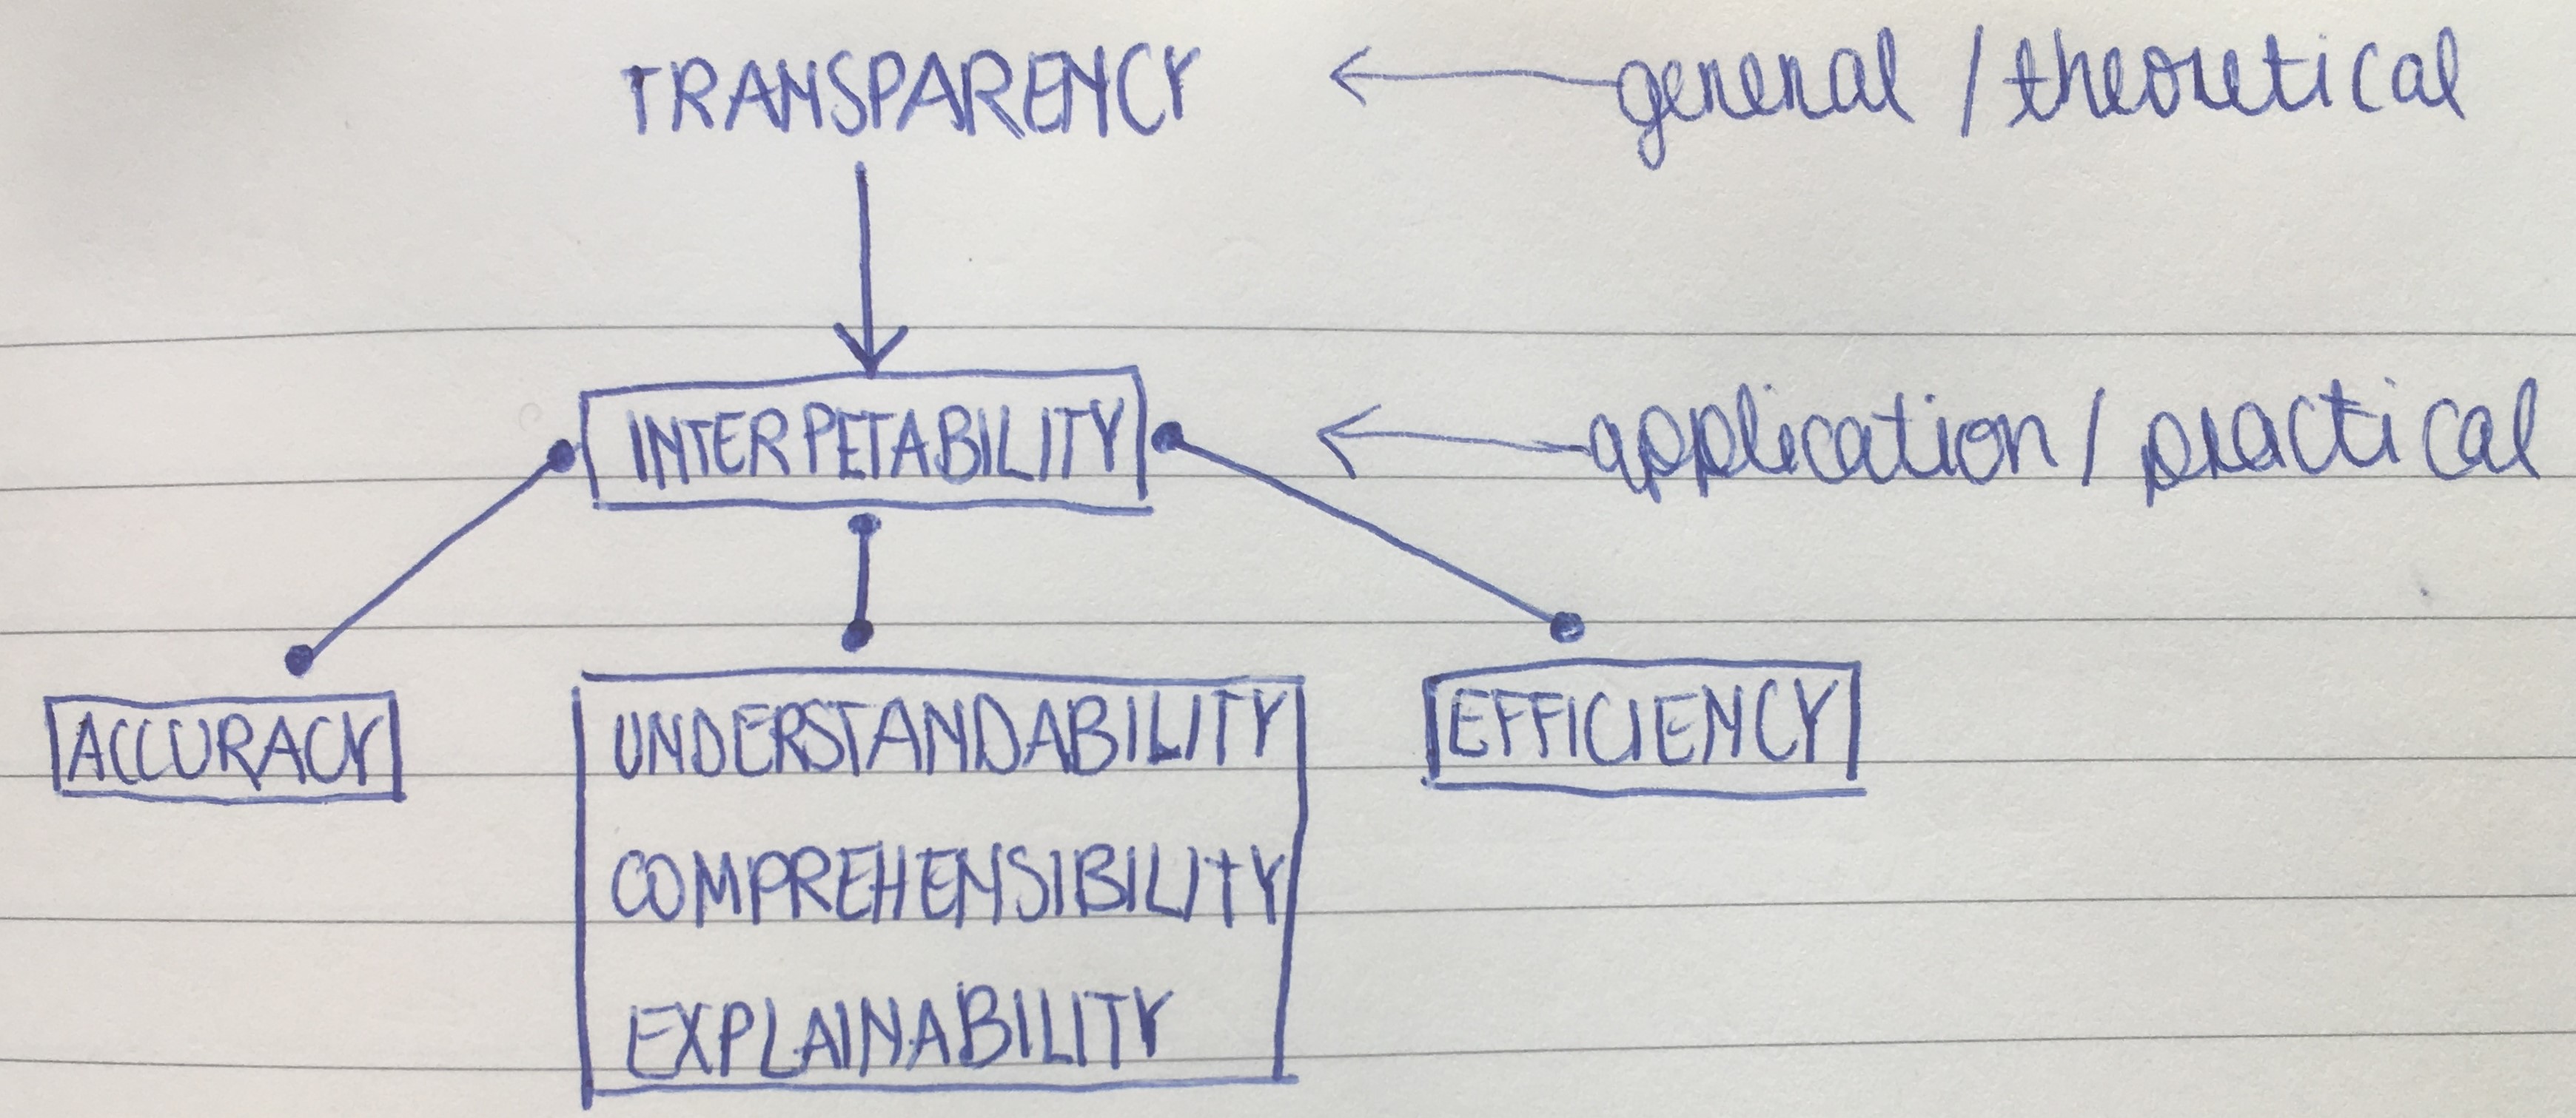 TRANSPARENCY ← general / theoretical
INTERPETABILITY ← application / practical
ACCURACY
UNDERSTANDABILITY
EFFICIENCY
COMPREHENSIBILITY
EXPLAINABILITY